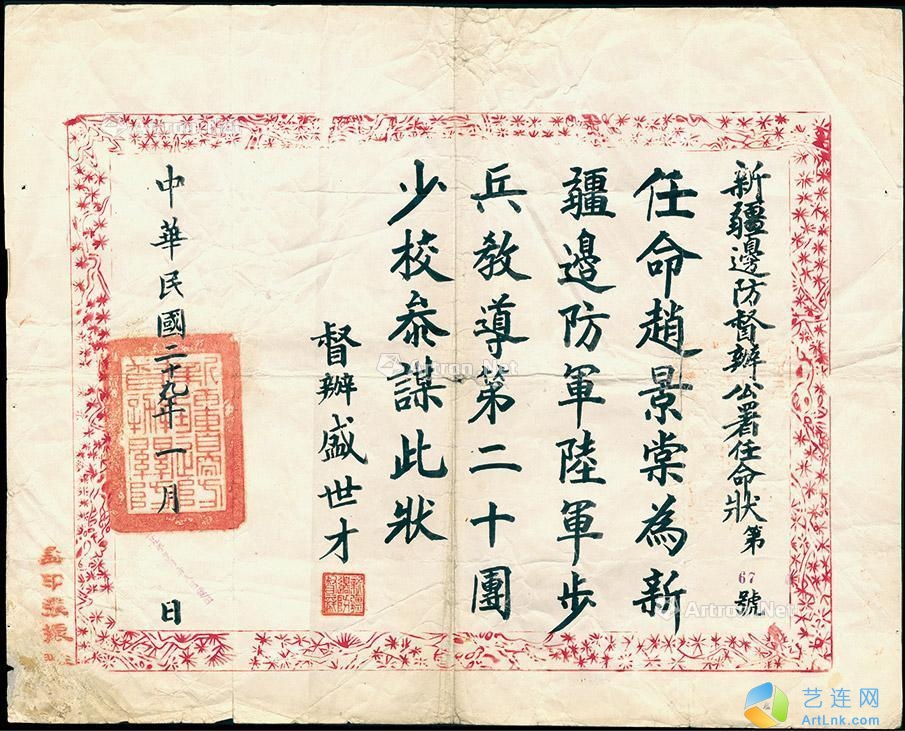 新疆邊防督辦公署任命狀第67號
任命趙景棠為新
疆邊防軍陸軍步
兵教導第二十團
少校叅謀此狀
督辦盛世才
中華民國二十九年一月 日
Artron.Net
Artron.Net
Artron.Net
艺连网
ArtLnk.com